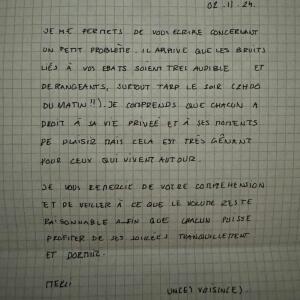 02.11.24.
JE ME PERMETS DE VOUS ECRIRE CONCERNANT
UN PETIT PROBLÈME. IL ARRIVE QUE LES BRUITS
LIÉS À VOS EBATS SOIENT TRES AUDIBLE ET
DERANGEANTS, SURTOUT TARD LE SOIR (2H00
DU MATIN!!). JE COMPRENDS QUE CHACUN A
DROIT À SA VIE PRIVEE ET À SES MOMENTS
DE PLAISIR MAIS CELA EST TRÈS GÊNANT
POUR CEUX QUI VIVENT AUTOUR.
JE VOUS REMERCIE DE VOTRE COMPREHENSION
ET DE VEILLER À CE QUE LE VOLUME RESTE
RAISONNABLE AFIN QUE CHACUN PUISSE
PROFITER DE SES SOIRÉES TRANQUILLEMENT
ET DORMIR.
MERCI
UN(E) VOISIN(E).